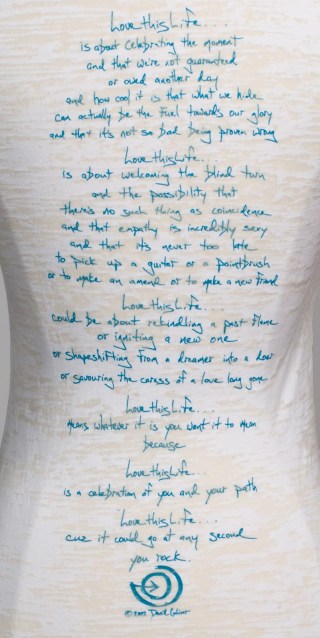 Love this Life....
is about celebrating the moment
and that we're not guaranteed
or owed another day
and how cool it is that what we hide
can actually be the fuel towards our glory
and that it's not so bad being proven wrong
Love this Life..
is about welcoming the blind turn
and the possibility that
there's no such thing as coincidence
and that empathy is incredibly sexy
and that it's never too late
to pick up a guitar or a paintbrush
or to make an amend or to make a new friend
Love this Life...
could be about rekindling a past flame
or igniting a new one
or shapeshifting from a dreamer into a doer
or savouring the caress of a love long gone
Love this Life....
Means whatever it is you want it to mean
because
Love this Life...
is a celebration of you and your path
Love this Life...
cuz it could go at any second
you rock.
©